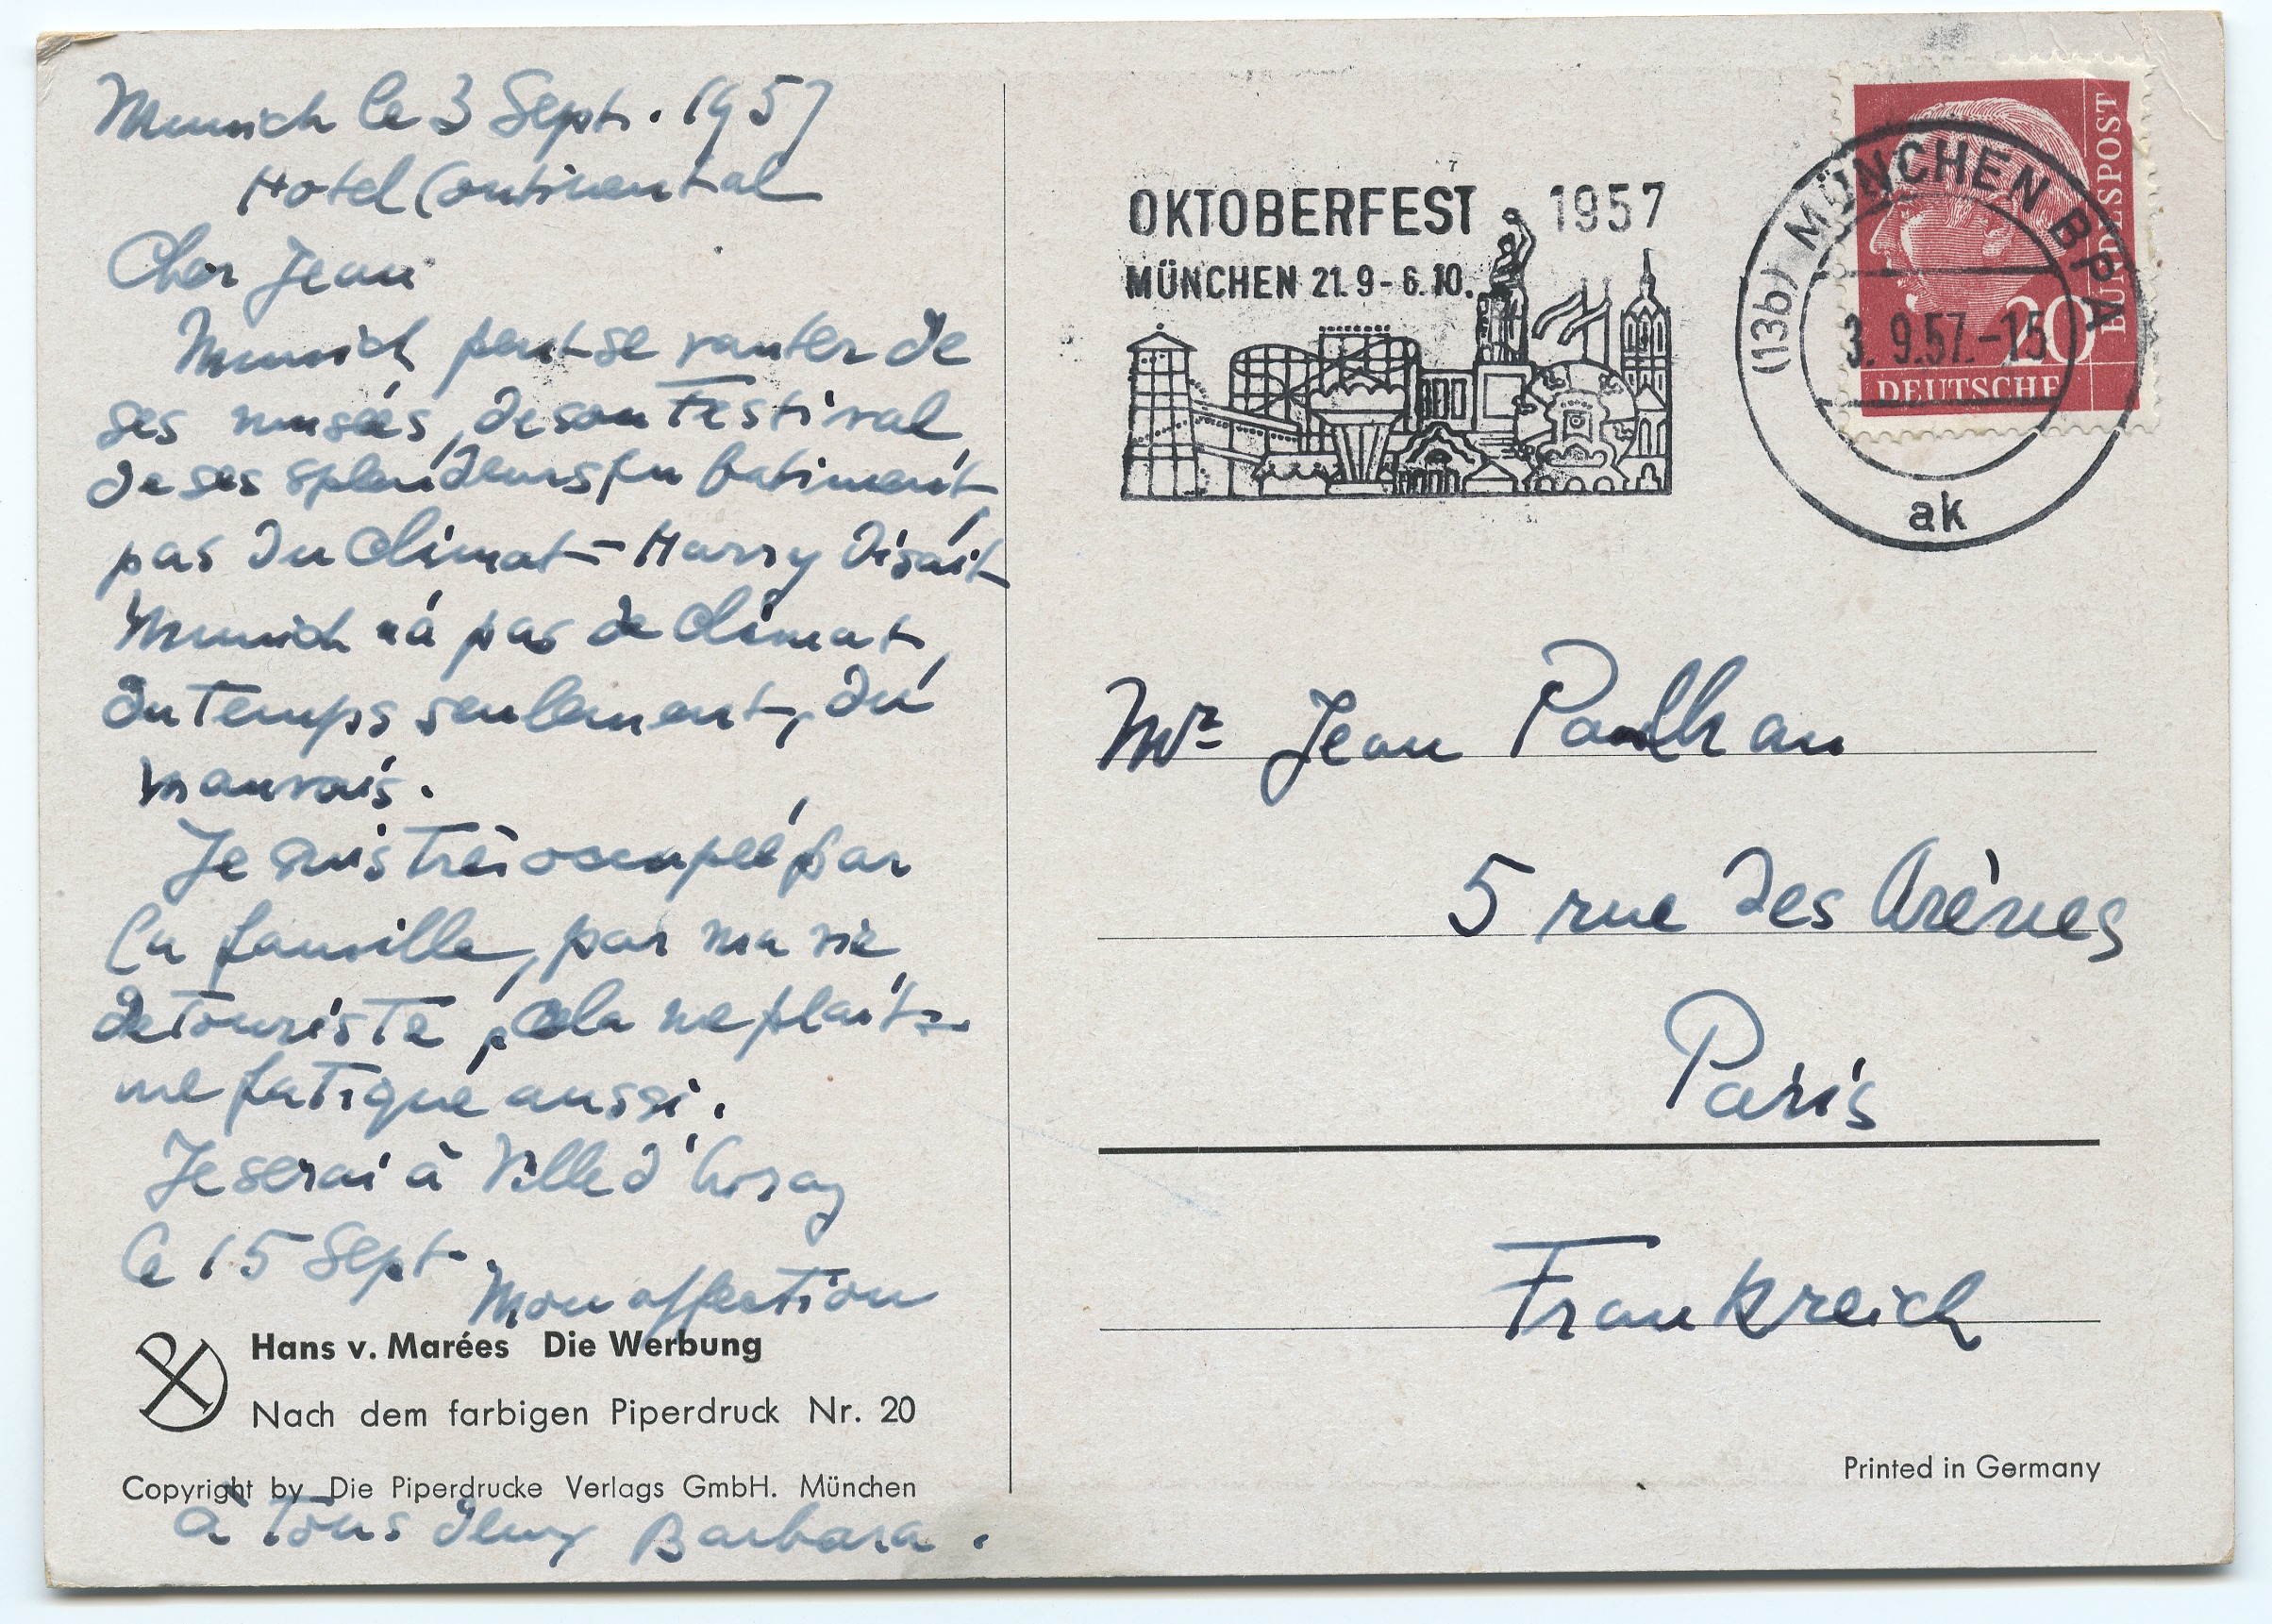 Munich le 3 Sept. 1957
Hotel Continental
Cher Jean
Munich peut se vanter de
ses musées, de son Festival
de ses splendeurs en batiment
pas du Climat - Harry disait
Munich n'a pas de Climat,
du Temps seulement, du
mauvais.
Je suis Très occupée par
la famille, par ma vie
de Touriste, cela me plait
me fatigue aussi.
Je serai à Ville d'Avray
le 15 Sept.
Mon affection
Hans v. Marées Die Werbung
Nach dem farbigen Piperdruck Nr. 20
Copyright by Die Piperdrucke Verlags GmbH. München
à Tous deux Barbara.
OKTOBERFEST 1957
MÜNCHEN 21.9-6.10.
(13b) MÜNCHEN BPA
3. 9.57.-15
ak
20
DEUTSCHE
BUNDESPOST
Mr Jean Paulhan
5 rue des Arènes
Paris
Frankreich
Printed in Germany